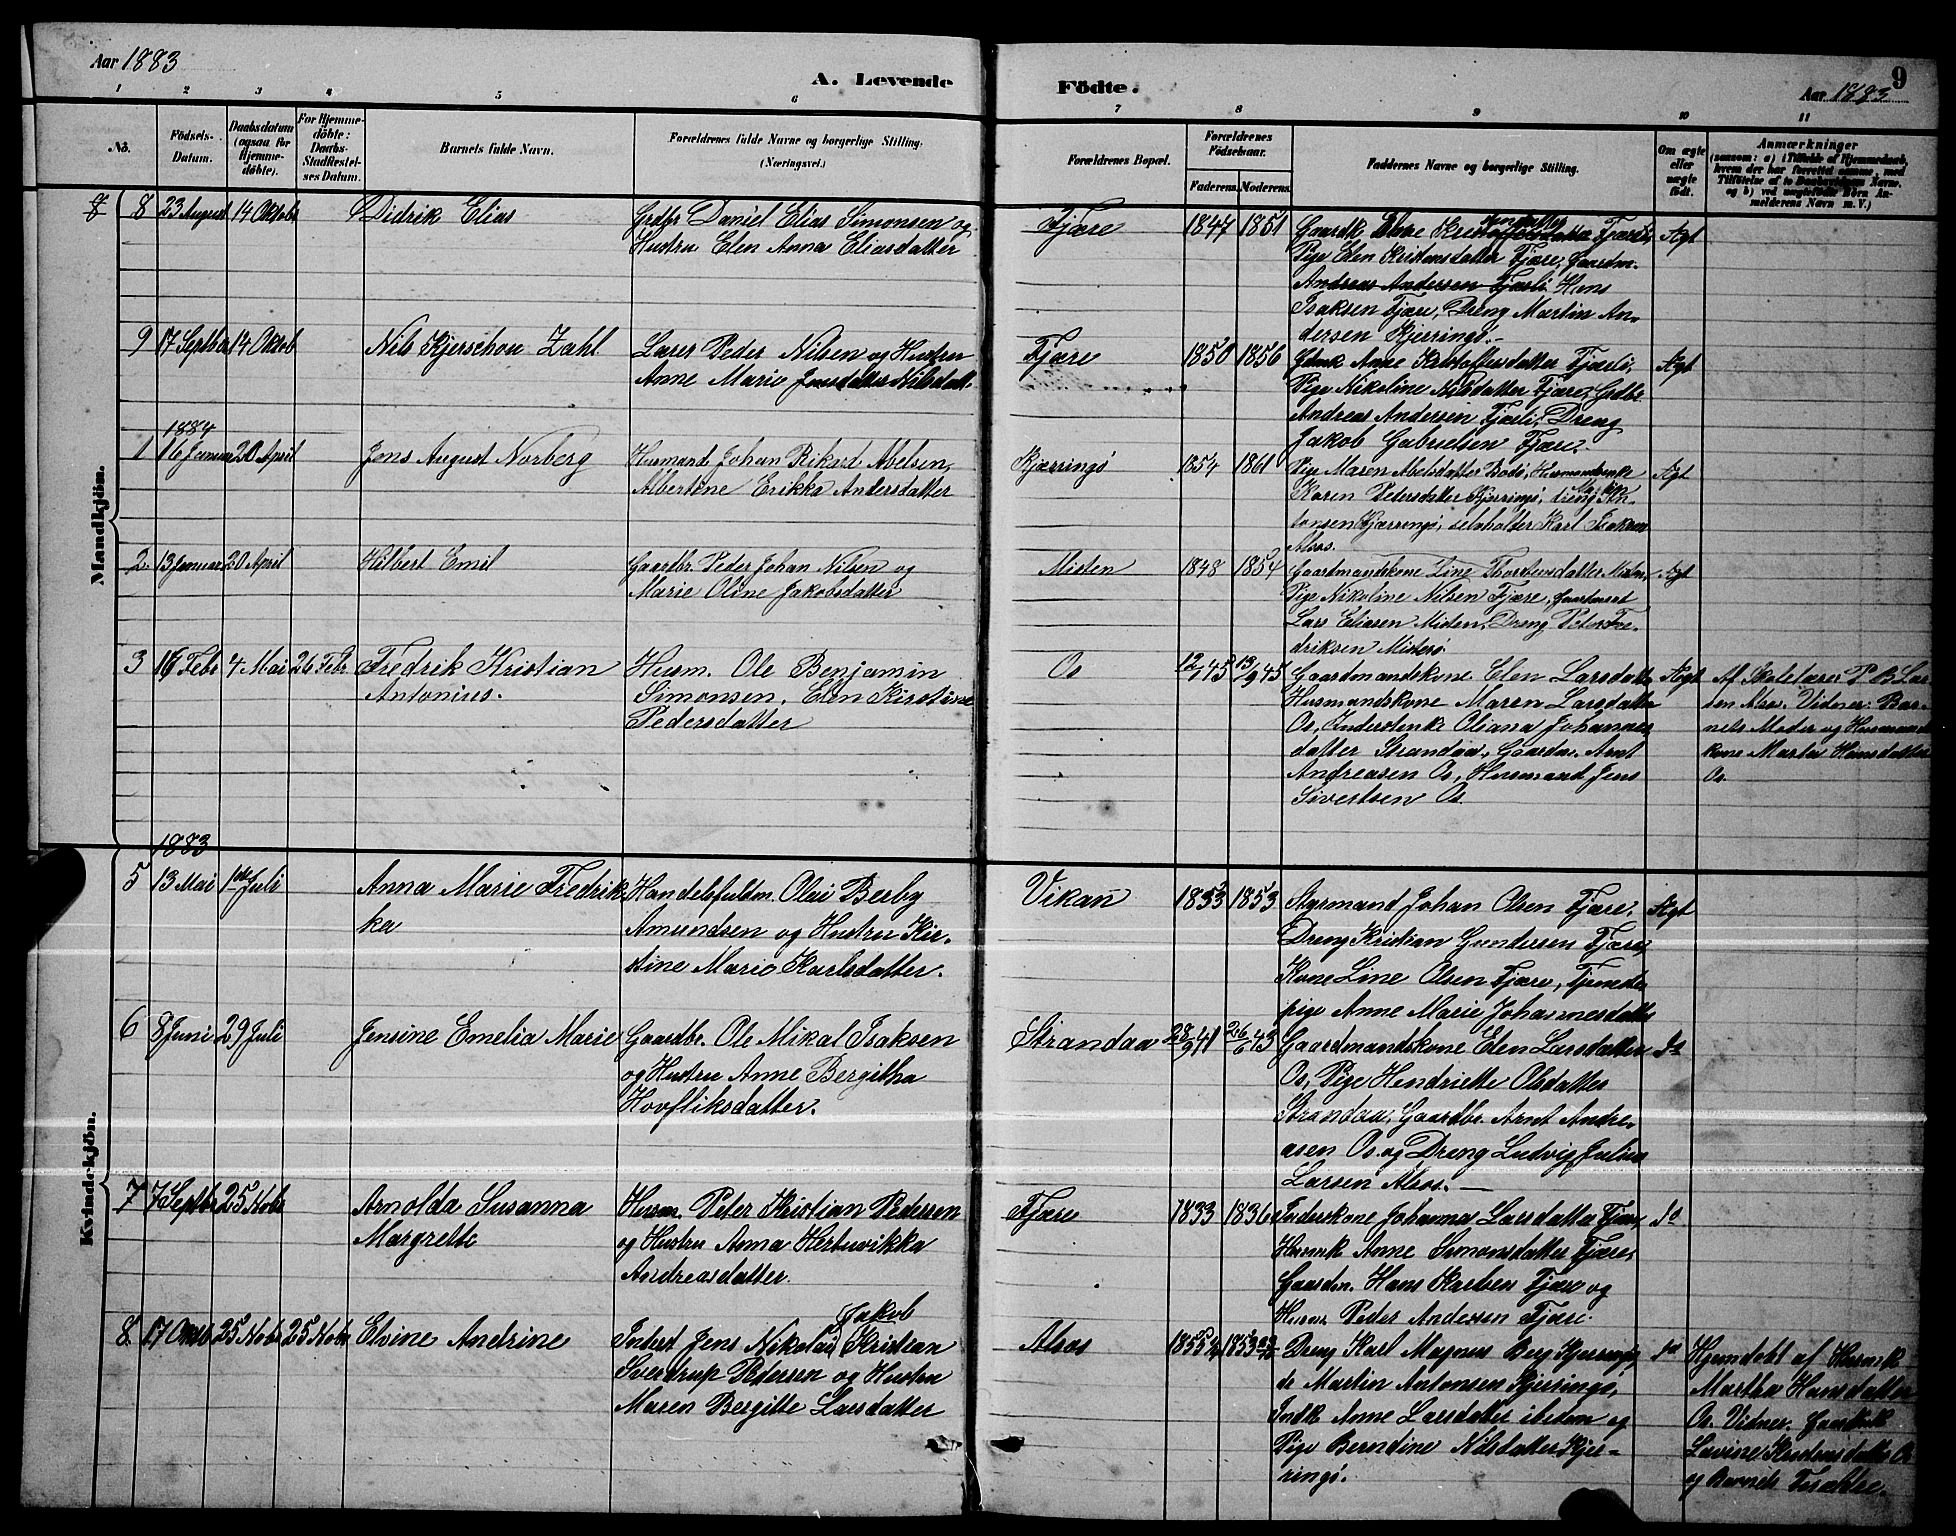 Aar 1883
A. Levende
Födte.
Aar 1883
9
1 2 3 4 5 6 7 8 9 10 11
No.
Födsels-
Datum.
Daabsdatum
(ogsaa for
Hjemme-
döbte).
For Hjemme-
döbte:
Daabs-
Stadfæstel-
ses Datum.
Barnets fulde Navn.
Forældrenes fulde Navne og borgerlige Stilling.
(Næringsvei.)
Forældrenes Bopæl.
Forældrenes
Födselsaar.
Faderens.
Moderens.
Faddernes Navne og borgerlige Stilling.
Om ægte
eller
uægte
født.
Anmærkninger
(saasom: a) i Tilfælde af Hjemmedaab,
hvem der har forrettet samme, med
Tilføielse af to Daabsvidners Navne,
og b) ved uægtefødte Börn An-
melderens Navn m. V.)
Mandkjön.
8 8 23 August 14 Oktobr Didrik Elias
Grdbr Daniel Elias Simonsen og
Hustru Elen Anna Eliasdatter
Fjære 1847 1851
Pige Elen Kristensdatter Fjære, Gaardm.
Andreas Andersen Fjærli Hans
Isaksen Fjære, Dreng Martin An-
dersen Kjerringö.
Ægt
9 17 Septbr 14 Oktob Nils Kjerschou Zahl
Laser Peder Nilsen og Hustru
Anne Marie Jensdatter Nilsdatt.
Fjære 1850 1856
Gmk Anne Kristoffersdatter Fjærli,
Pige Nikoline Nilsdatter Fjære, Grdbr.
Andreas Andersen Fjærli, Dreng
Jakob Gabrielsen Fjære.
Ægt
1884
1 16 Januar 20 April Jens August Norberg
Husmand Johan Rikard Abelsen,
Albertine Erikka Andersdatter
Kjærringö 1854 1861
Pige Maren Abelsdatter Bodö, Husmandsenke
Karen Pedersdatter Kjerringö, dreng Martin An-
tonsen Kjærringö, selvholder Karl Isaksen
Alsos.
Ægt
2 13 Januar 20 April Hilbert Emil
Gaardbr. Peder Johan Nilsen og
Marie Oline Jakobsdatter
Misten 1848 1854
Gaardmandskone Line Thorstensdatter Misten,
Pige Nikoline Nilsen Fjære, Gaardmand
Lars Eliasen Misten, Dreng Peter Fre-
driksen Misten
Ægt
3 16 Febr 4 Mai 26 Febr. Fredrik Kristian
Antonius.
Husm. Ole Benjamin
Simonsen, Elen Kirstine
Pedersdatter
Os 12/1 45 13/9 45
Gaardmandskone Elen Larsdatter
Husmandskone Maren Larsdatter
Os, Inderstenke Oliana Johannes
datter Strandaa, Gaardm. Arnt
Andreasen Os, Husmand Jens
Sivertsen Os.
Ægt
Af Skolelærer P B Lar-
sen Alsos. Vidner: Bar-
nets Moder og Husmands
kone Marta Hansdatter
Os.
Kvindekjön.
1883
5 13 Mai 1ste Juli Anna Marie Fredrik
ka
Handelsfuldm. Olai Berby
Amundsen og Hustru Kir-
stine Marie Karlsdatter.
Vikan 1853 1853
Styrmand Johan Olsen Fjære,
Dreng Kristian Gundersen Fjære,
Kone Line Olsen Fjære, Tjeneste
pige Anne Marie Johannesdatter
Ægt
6 8 Juni 29 Juli Jensine Emelia Marie
Gaardbr. Ole Mikal Isaksen
og Hustru Anne Bergitha
Hovfliksdatter.
Strandaa 28/9 41 26/6 43
Gaardmandskone Elen Larsdatter
Os, Pige Henriette Olsdatter
Strandaa, Gaardbr. Arnt Andre-
asen Os og Dreng Ludvig Julius
Larsen Alsos.
do
7 7 Septbr 25 Nobr Arnolda Susanna
Margrethe
Husm. Peter Kristian Pedersen
og Hustru Anna Hertuvikka
Andreasdatter.
Fjære 1833 1836
Inderskone Johanna Larsdatter Fjære
Husmk Anne Simonsdatter Fjære,
Gaardm. Hans Karlsen Fjære og
Husm. Peder Andersen Fjære.
do
8 17 25 Nobr 25 Nobr Elvine Andrine
Inderst Jens Nikolai Jakob Kristian
Sverdrup Pedersen og Hustru
Maren Bergitte Larsdatter
Alsos 1855 1853
Dreng Karl Magnus Berg Kjerringö,
do Martin Antonsen Kjerringö,
Indk Anne Larsdatter ibidem og
Pige Berndine Nilsdatter Kjer-
ringö.
do
Hjemdöbt af Husmk
Martha Hansdatter
Os. Vidner. Gaardmk
Lavine Kristensdatter Os
og Barnets Forældre.